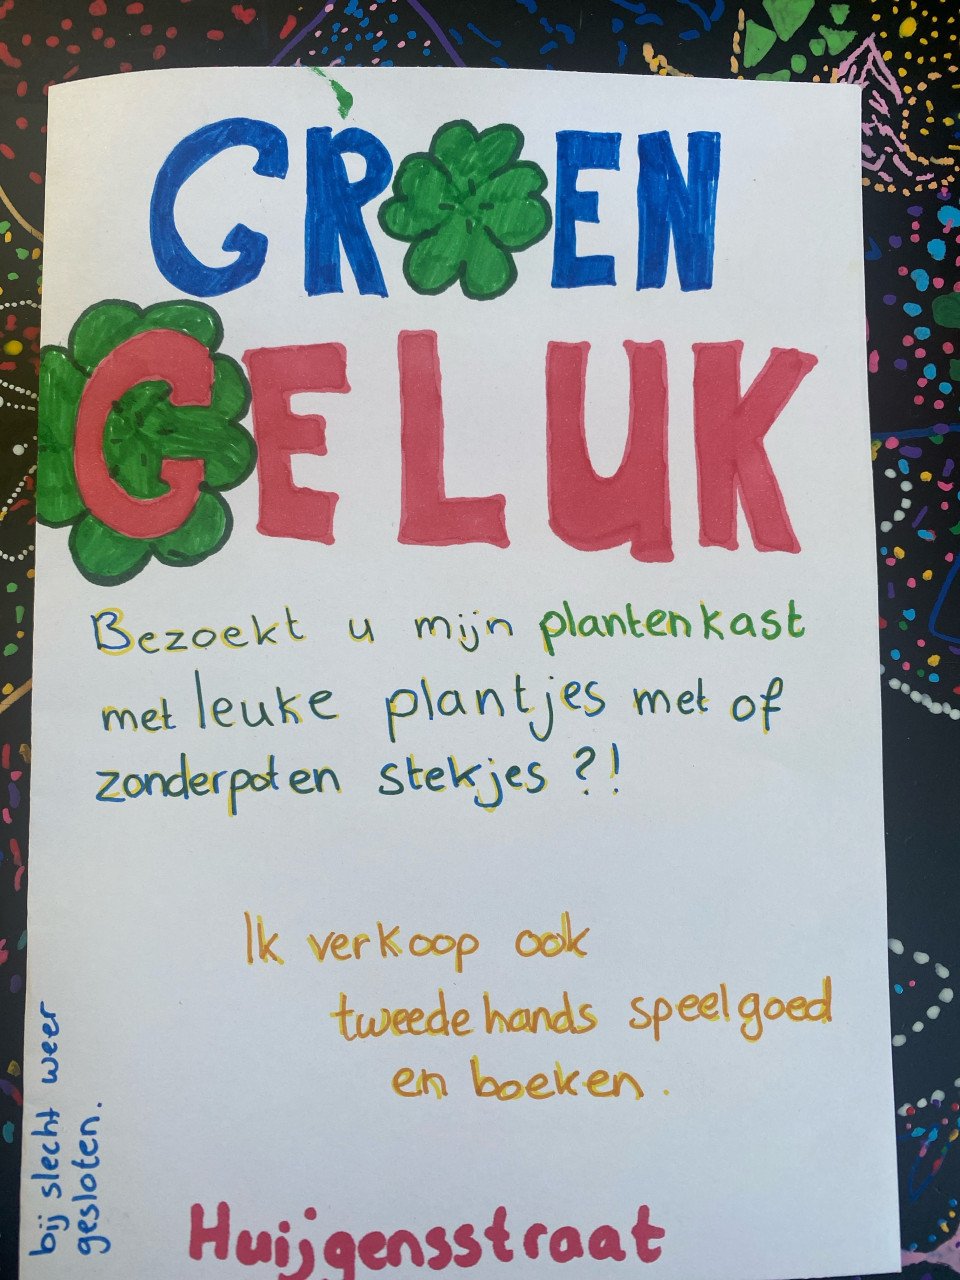 GROEN
GELUK
Bezoekt u mijn plantenkast
met leuke plantjes met of
zonder pot en stekjes?!
Ik verkoop ook
tweede hands speelgoed
en boeken.
bij slecht weer
gesloten.
Huijgensstraat